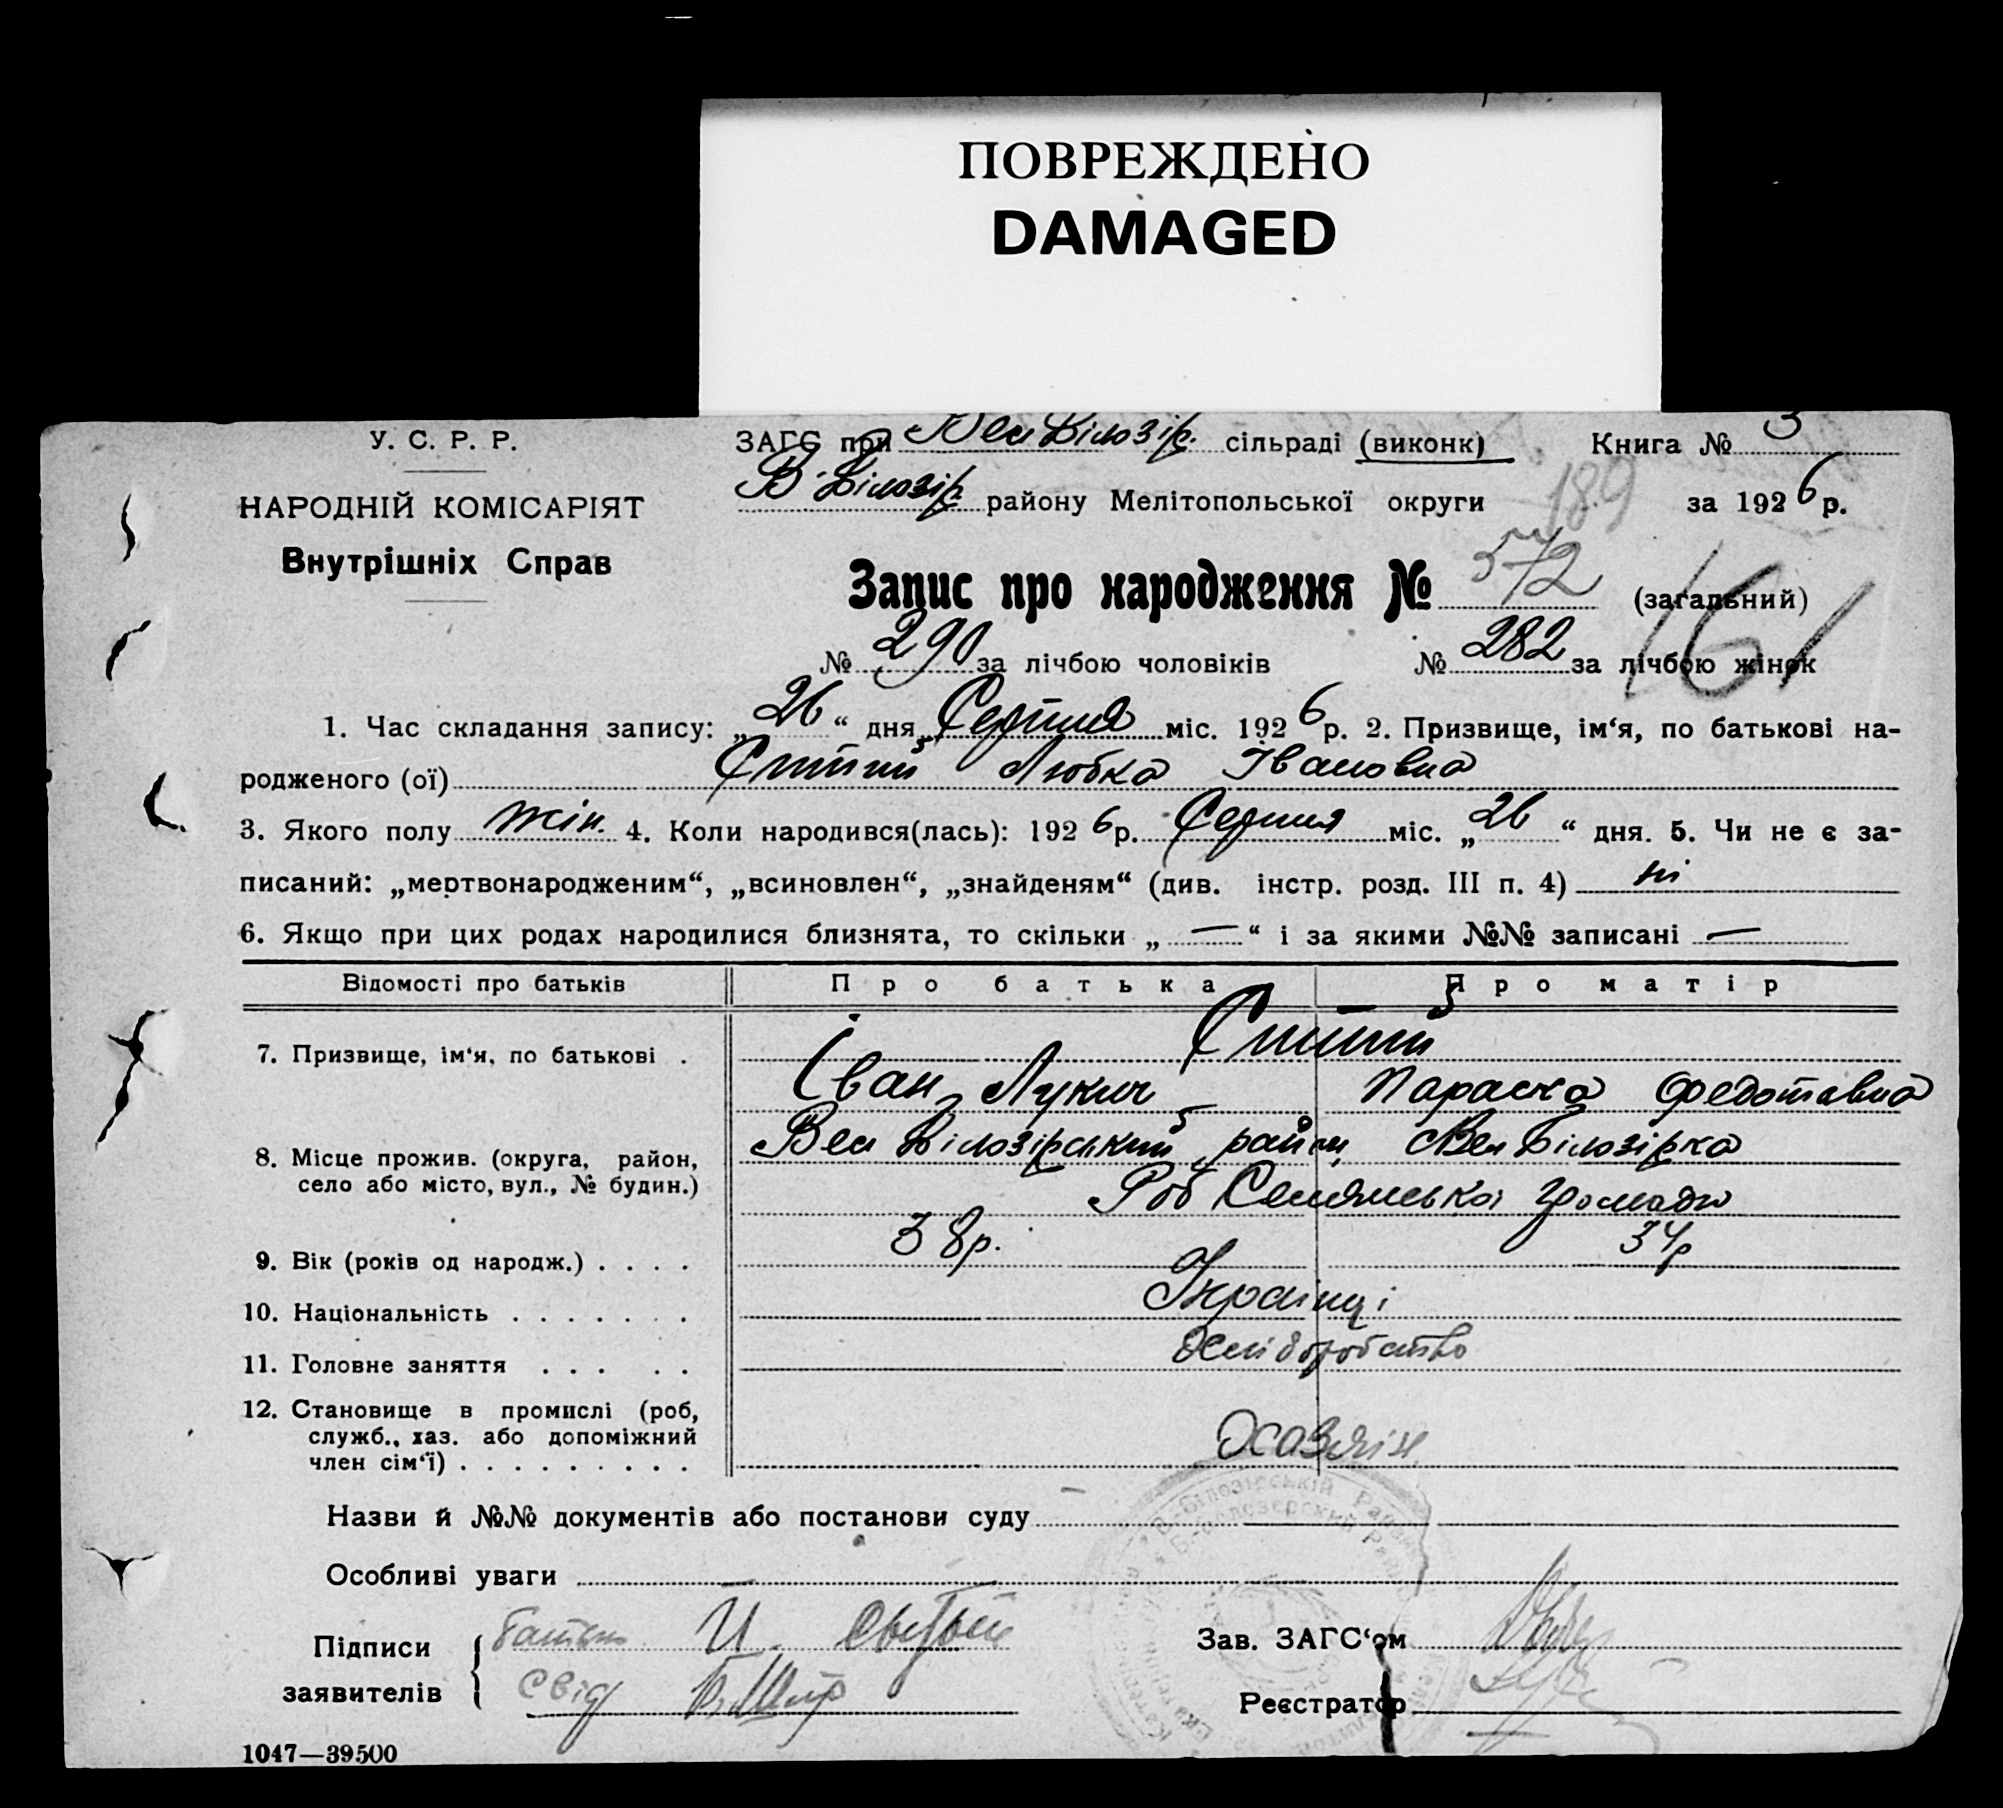 ПОВРЕЖДЕНО
DAMAGED
У. С. Р. Р.
ЗАГС при Вел Білозір. сільраді (виконк) Книга № 3
НАРОДНІЙ КОМІСАРІЯТ
В. Білозір. району Мелітопольської округи 189 за 1926 р.
Внутрішніх Справ
Запис про народження № 572 (загальний)
161
№ 290 за лічбою чоловіків № 282 за лічбою жінок
1. Час складання запису: „26“ дня Серпня міс. 1926 р. 2. Призвище, ім‘я, по батькові на-
родженого (ої) Ситий Любка Івановна
3. Якого полу жін. 4. Коли народився(лась): 1926 р. Серпня міс. „26“ дня. 5. Чи не є за-
писаний: „мертвонародженим“, „всиновлен“, „знайденям“ (див. інстр. розд. III п. 4) ні
6. Якщо при цих родах народилися близнята, то скільки „ — “ і за якими №№ записані —
Відомості про батьків Про батька Про матір
7. Призвище, ім‘я, по батькові . Ситий
Іван Лукич Параска Федотавна
8. Місце прожив. (округа, район, Вел Білозірський район Вел Білозірка
село або місто, вул., № будин.) Роб Селянської громади
9. Вік (років од народж.) . . . . 38р. 34р
10. Національність . . . . . . . Українці
11. Головне заняття . . . . . Хліборобство
12. Становище в промислі (роб,
служб., хаз. або допоміжний
член сім‘ї) . . . . . . . . . Хазяїн
Назви й №№ документів або постанови суду
Особливі уваги
Підписи батько И.
Зав. ЗАГС‘ом
заявителів свід
Реєстратор
1047—39500